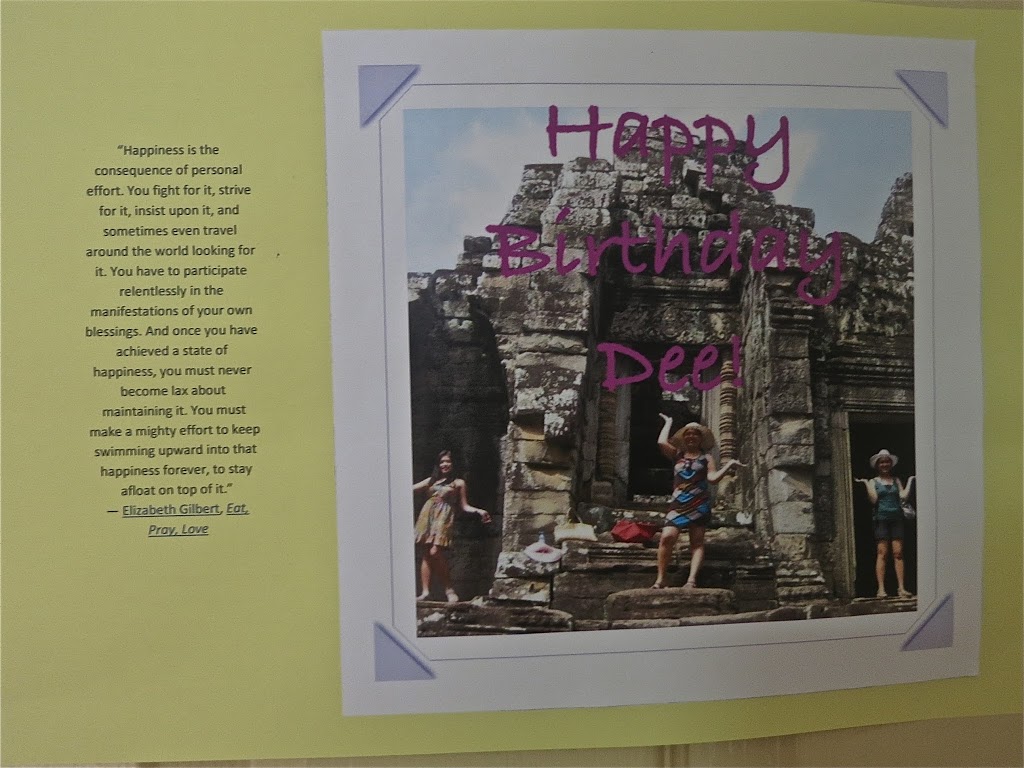 “Happiness is the
consequence of personal
effort. You fight for it, strive
for it, insist upon it, and
sometimes even travel
around the world looking for
it. You have to participate
relentlessly in the
manifestations of your own
blessings. And once you have
achieved a state of
happiness, you must never
become lax about
maintaining it. You must
make a mighty effort to keep
swimming upward into that
happiness forever, to stay
afloat on top of it.”
— Elizabeth Gilbert, Eat,
Pray, Love
Happy
Birthday
Dee!